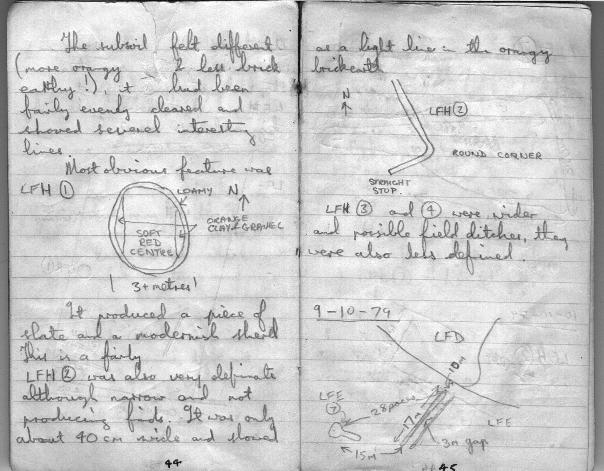 The subsoil felt different
(more orangy & less brick
earthy!), it had been
fairly evenly cleared and
showed several interesting
lines.
Most obvious feature was
LFH ①
LOAMY
N
ORANGE
CLAY + GRAVEL
SOFT
RED
CENTRE
3+ metres
It produced a piece of
slate and a modernish sherd
This is a fairly
LFH ② was also very definate
although narrow and not
producing finds. It was only
about 40 cm wide and showed
44
as a light line in the orangy
brickearth
N
LFH ②
ROUND CORNER
STRAIGHT
STOP.
LFH ③ and ④ were wider
and possible field ditches, they
were also less defined.
9-10-79
LFD
10m
LFE
⑦
28 paces
17m
LFE
15m
3m gap
45